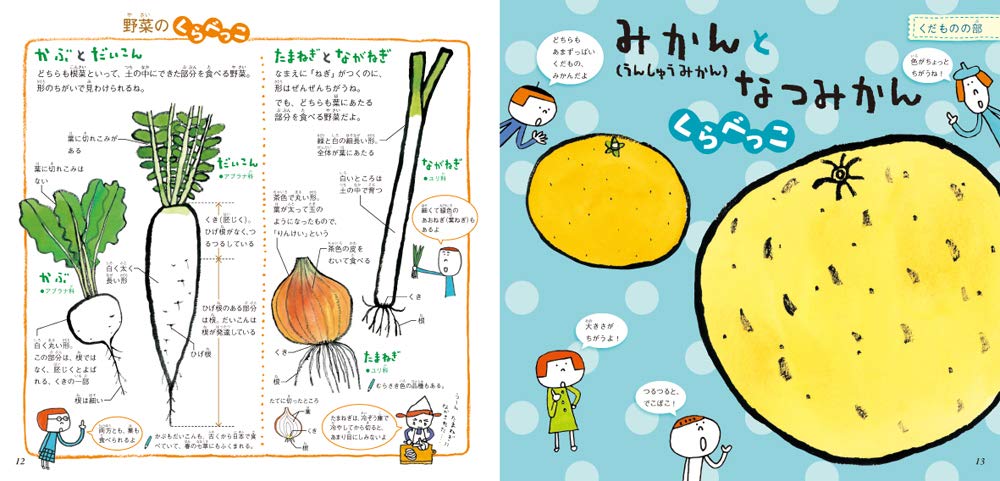 野菜のくらべっこ
かぶとだいこん
どちらも根菜といって、土の中にできた部分を食べる野菜。
形のちがいで見わけられるね。
葉に切れこみが
ある
葉に切れこみは
ない
だいこん
●アブラナ科
くき(胚じく)。
ひげ根がなく、つ
るつるしている
白く太く
長い形
かぶ
●アブラナ科
ひげ根のある部分
は根。だいこんは
根が発達している
ひげ根
白く丸い形。
この部分は、根では
なく、胚じくとよば
れる、くきの一部
根は細い
両方とも、葉も
食べられるよ
かぶもだいこんも、古くから日本で食
べていて、春の七草にもふくまれる。
12
たまねぎとながねぎ
なまえに「ねぎ」がつくのに、
形はぜんぜんちがうね。
でも、どちらも葉にあたる
部分を食べる野菜だよ。
緑と白の細長い形。
全体が葉にあたる
ながねぎ
●ユリ科
白いところは
土の中で育つ
茶色で丸い形。
葉が太って玉の
ようになったもので、
「りんけい」という
細くて緑色の
あおねぎ(葉ねぎ)も
あるよ
茶色の皮を
むいて食べる
くき
根
たまねぎ
●ユリ科
くき
根
むらさき色の品種もある。
たてに切ったところ
葉
くき
根
たまねぎは、冷ぞう庫で
冷やしてから切ると、
あまり目にしみないよ
くだものの部
みかんと
(うんしゅうみかん)
なつみかん
くらべっこ
どちらも
あまずっぱい
くだもの、
みかんだよ
色がちょっと
ちがうね!
大きさが
ちがうよ!
つるつると、
でこぼこ!
13